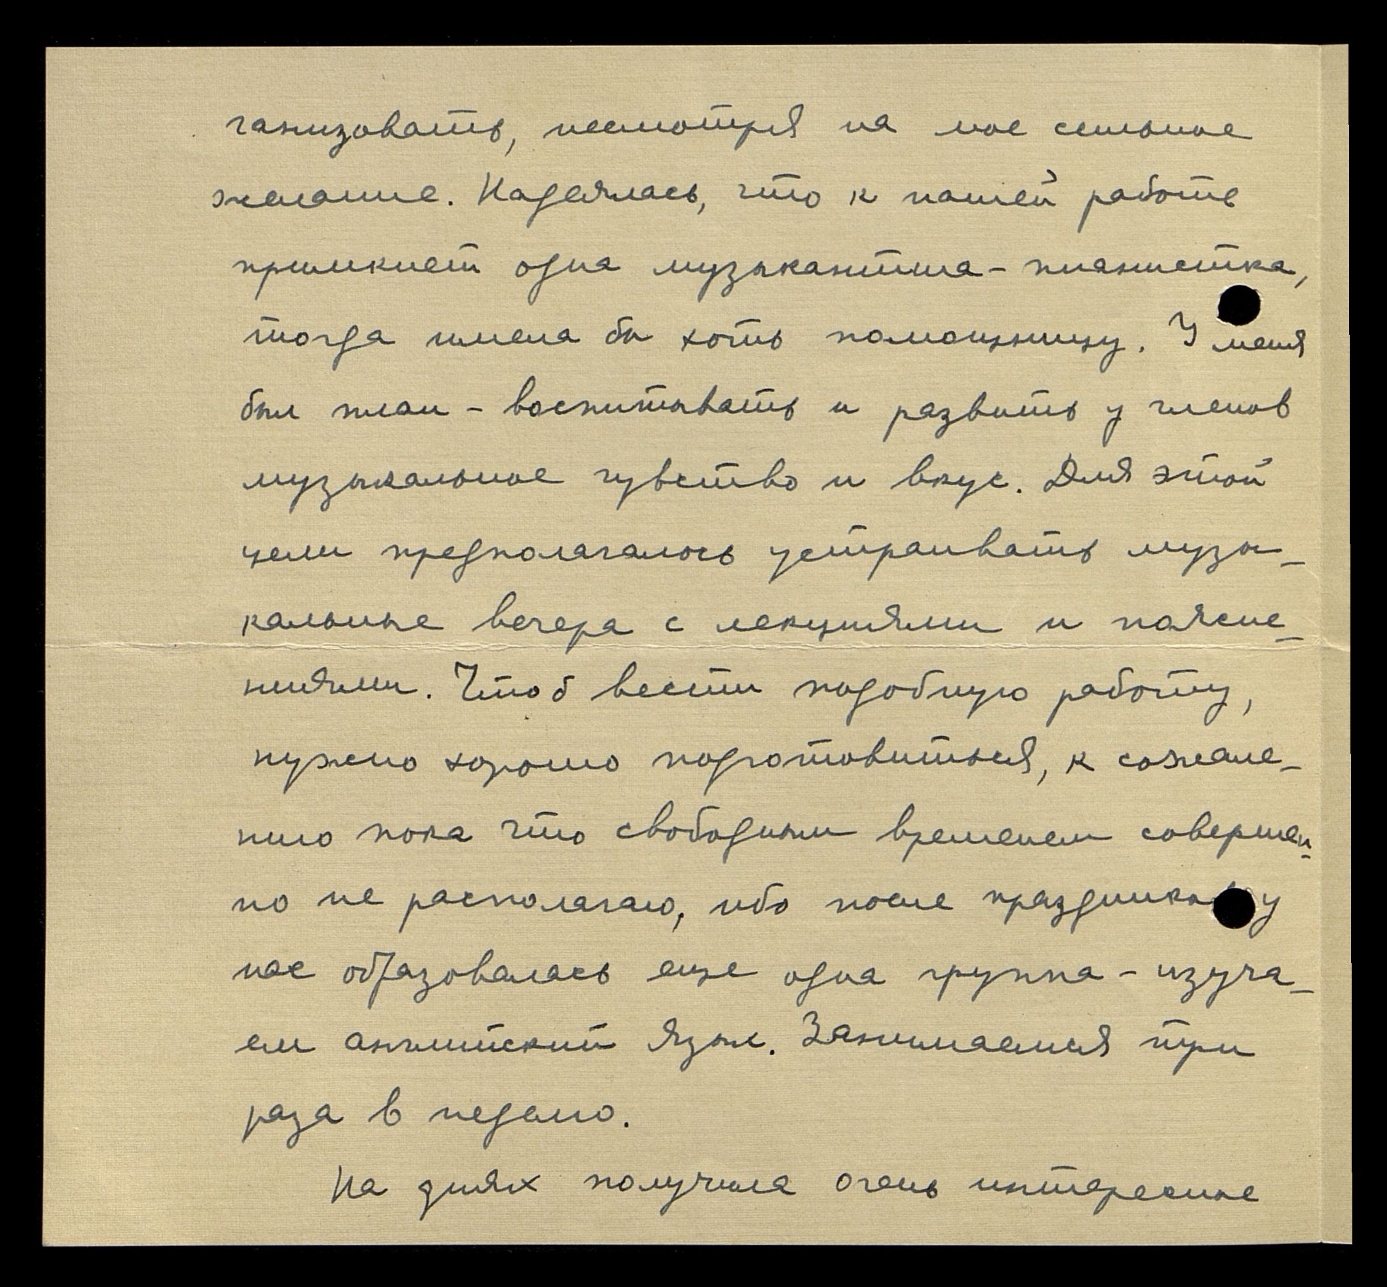 ганизовать, несмотря на мое сильное
желание. Надеялась, что к нашей работе
примкнет одна музыкантша - пианистка,
тогда имела бы хоть помощницу. У меня
был план - воспитывать и развить у членов
музыкальное чувство и вкус. Для этой
цели предполагалось устраивать музы-
кальные вечера с лекциями и поясне-
ниями. Чтоб вести подобную работу,
нужно хорошо подготовиться, к сожале-
нию пока что свободным временем совершен-
но не располагаю, ибо после праздников у
нас образовалась еще одна группа - изуча-
ем английский язык. Занимаемся три
раза в неделю.
На днях получила очень интересные